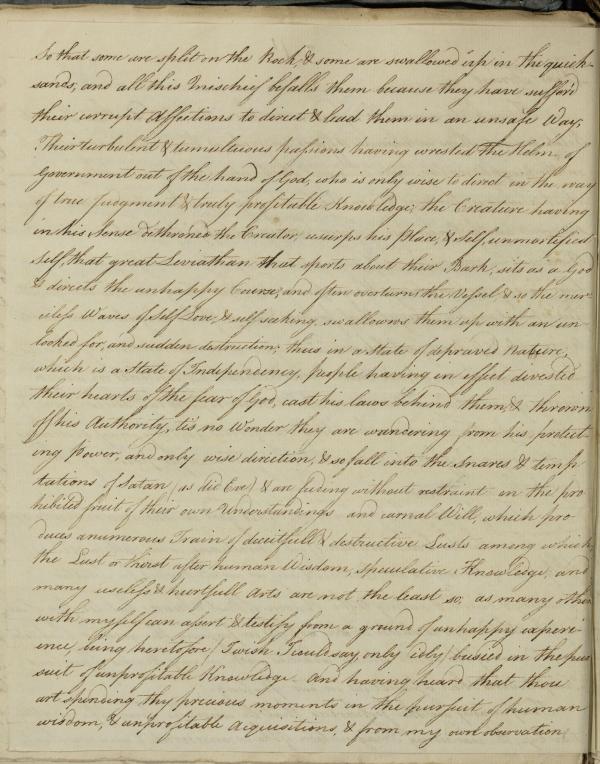 So that some are split on the Rock, & some are swallowed up in the quick-
sands, and all this Mischief befalls them because they have sufferd
their corrupt Affections to direct & lead them in an unsafe Way,
Their turbulent & tumultuous passions having wrested the Helm of
Government out of the hand of God, who is only wise to direct in the way
of true Judgment & truly profitable Knowledge; the Creature having
in his Sense dethroned the Creator, usurps his Place, & Self, unmortified
Self, that great Leviathan that sports about their Bark, sits as a God
& directs the unhappy Course, and often overturns the Vessel, & so the mer-
ciless Waves of Self Love, & self seeking, swallowns them up with an un-
looked for, and sudden destruction; thus in a State of depraved Nature,
which is a State of Independency, People having in effect divested
their hearts of the fear of God, cast his laws behind them, & thrown
off his Authority, tis no Wonder they are wandering from his protect-
ing Power, and only wise direction, & so fall into the Snares & temp
tations of Satan (as did Eve) & are feeding without restraint on the pro
hibited fruit of their own Understandings and carnal Will, which pro
duces a numerous Train of deceitfull & destructive Lusts among which
the Lust or thirst after human Wisdom, Speculative Knowledge, and
many useless & hurtfull Arts are not the least so; as many others
with myself can assert & testify from a ground of unhappy experi-
ence, being heretofore (I wish I could say, only idly) busied in the pur
suit of unprofitable Knowledge. And having heard that thou
art spending thy precious moments in the pursuit of human
wisdom, & unprofitable Acquisitions, & from my own observation